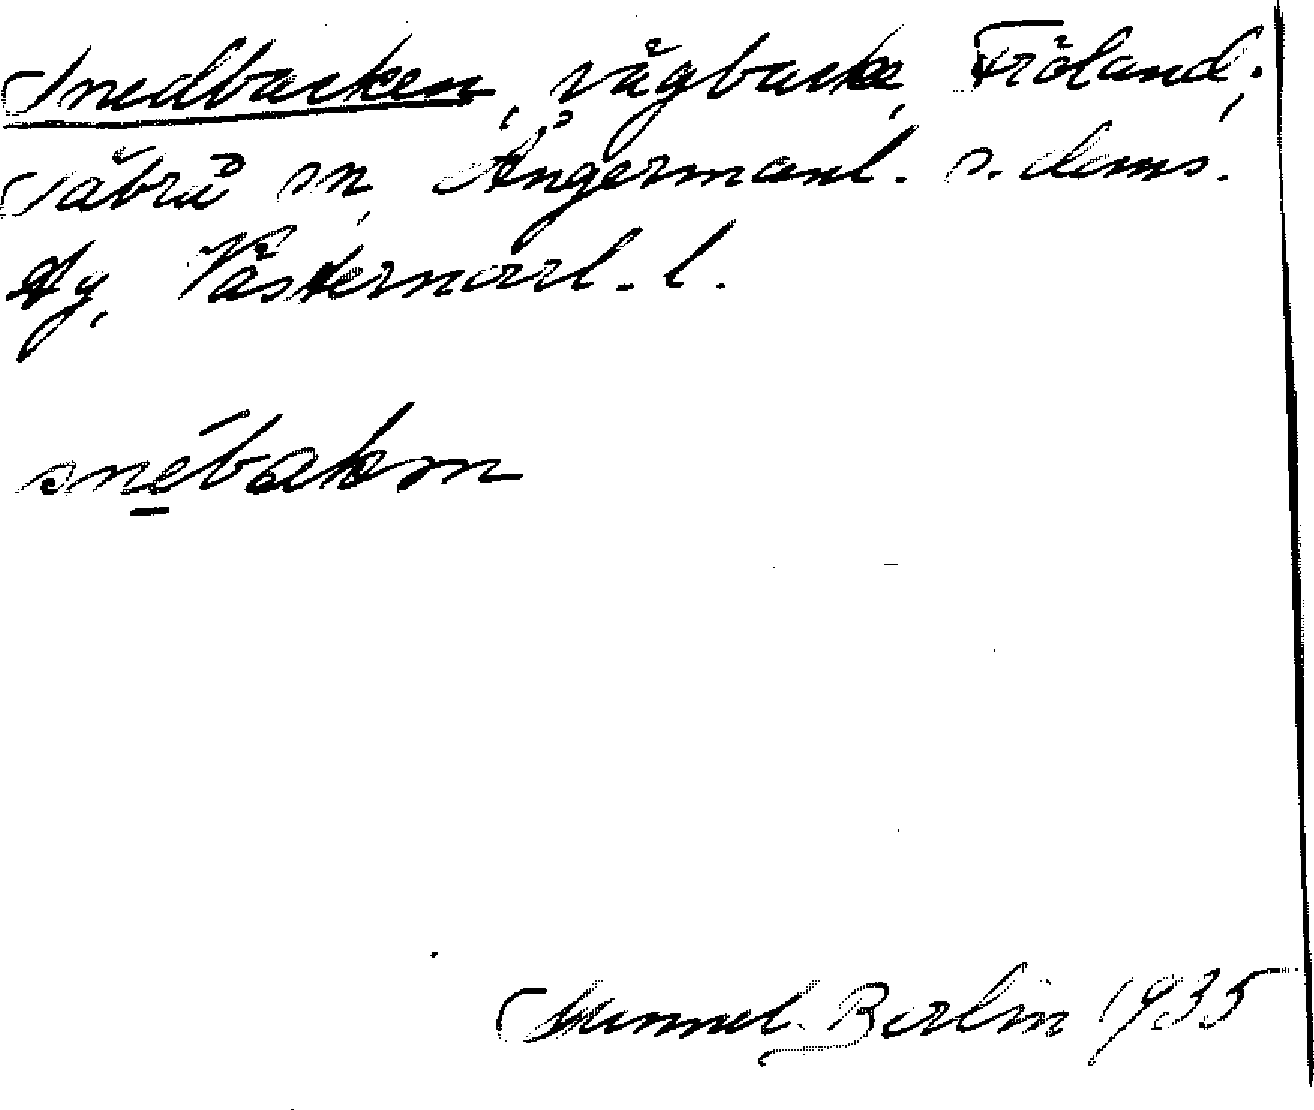 Snedbacken, vägbacke, Fröland,
Säbrå sn, Ångermanl. s. doms.
dg, Västernorrl. l.
snēbakɐn
Gunnel Berlin 1935